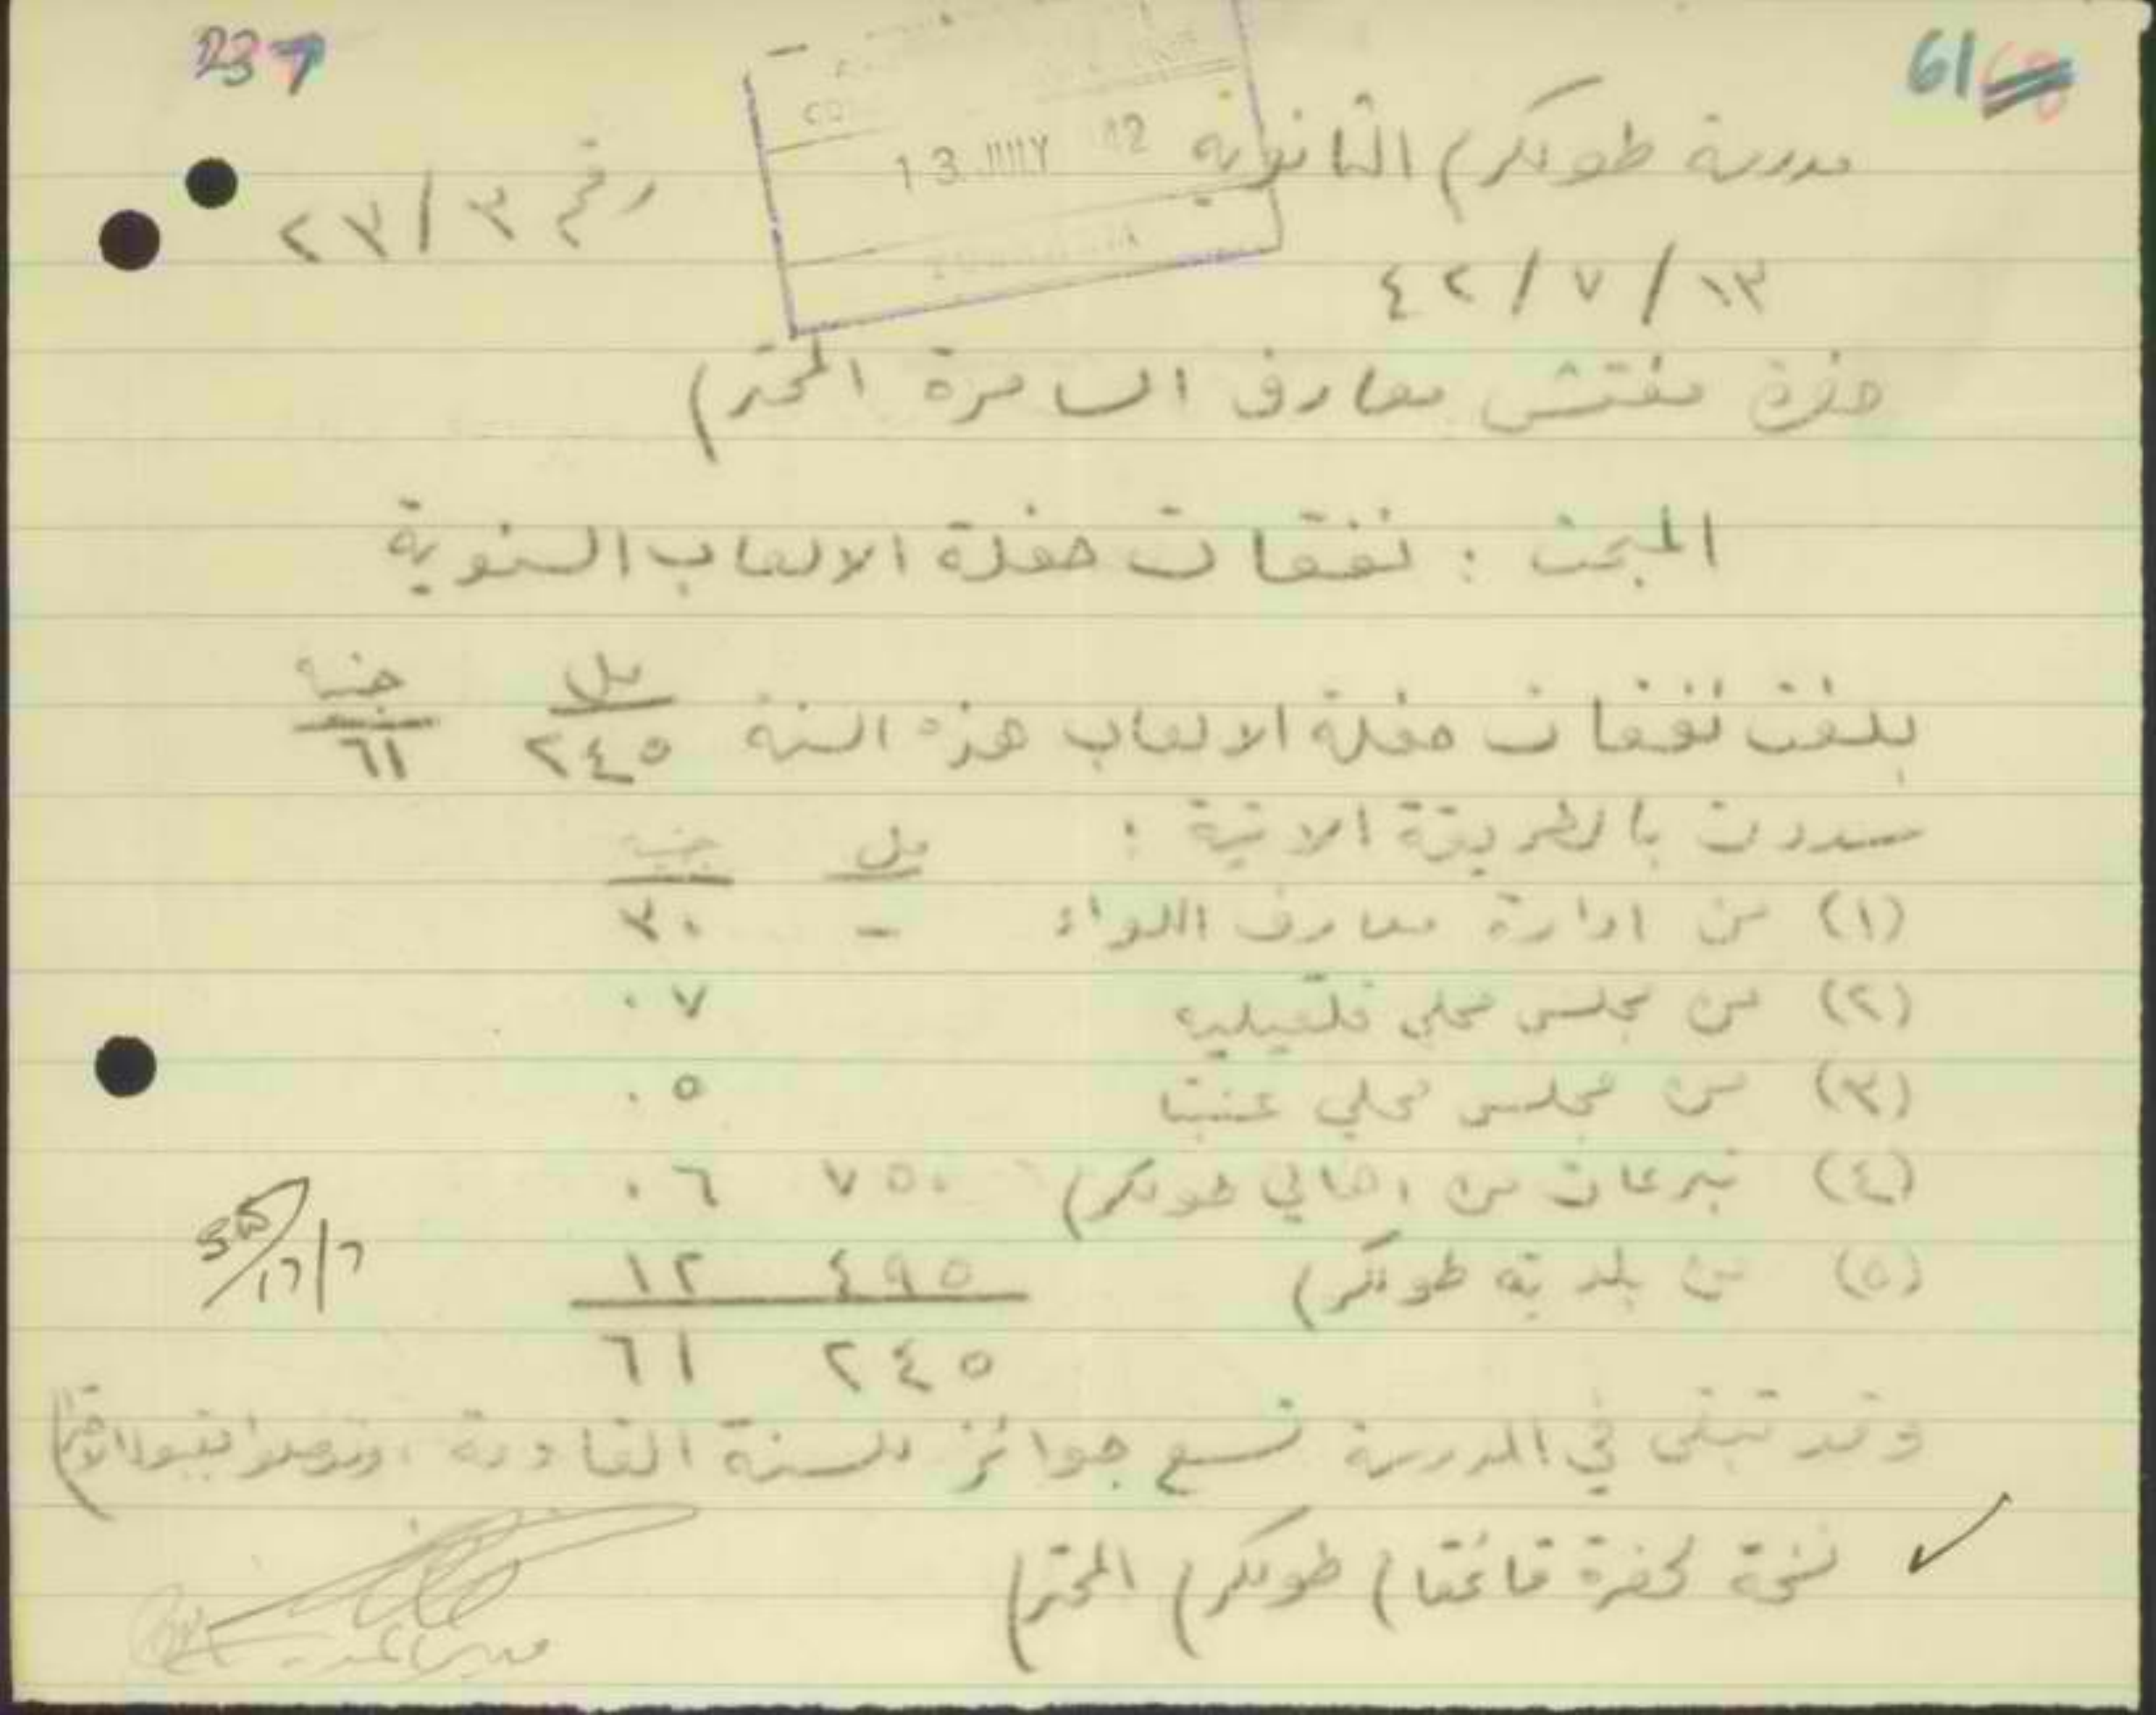 237
61
مدرسة طولكرم الثانوية
رقم ٢٣/٣
13 JULY 42
١٣/٧/٤٢
حضرة مفتش معارف السامرة المحترم
المبحث : نفقات حفلة الالعاب السنوية
مل جنيه
بلغت نفقات حفلة الالعاب هذه السنة ٢٤٥ ٦١
سددت بالطريقة الاتية : مل جنيه
(١) من ادارة معارف اللواء - ٣٠
(٢) من مجلس محلي قلقيليه ٠٧
(٣) من مجلس محلي عنبتا ٠٥
(٤) تبرعات من اهالي طولكرم ٧٥٠ ٠٦
(٥) من بلدية طولكرم ٤٩٥ ١٢
٢٤٥ ٦١
17/7
وقد تبقى في المدرسة تسع جوائز للسنة القادمة ، وتفضلوا بقبول الاحترام
✓ نسخة لحضرة قائمقام طولكرم المحترم
مدير المدرسة